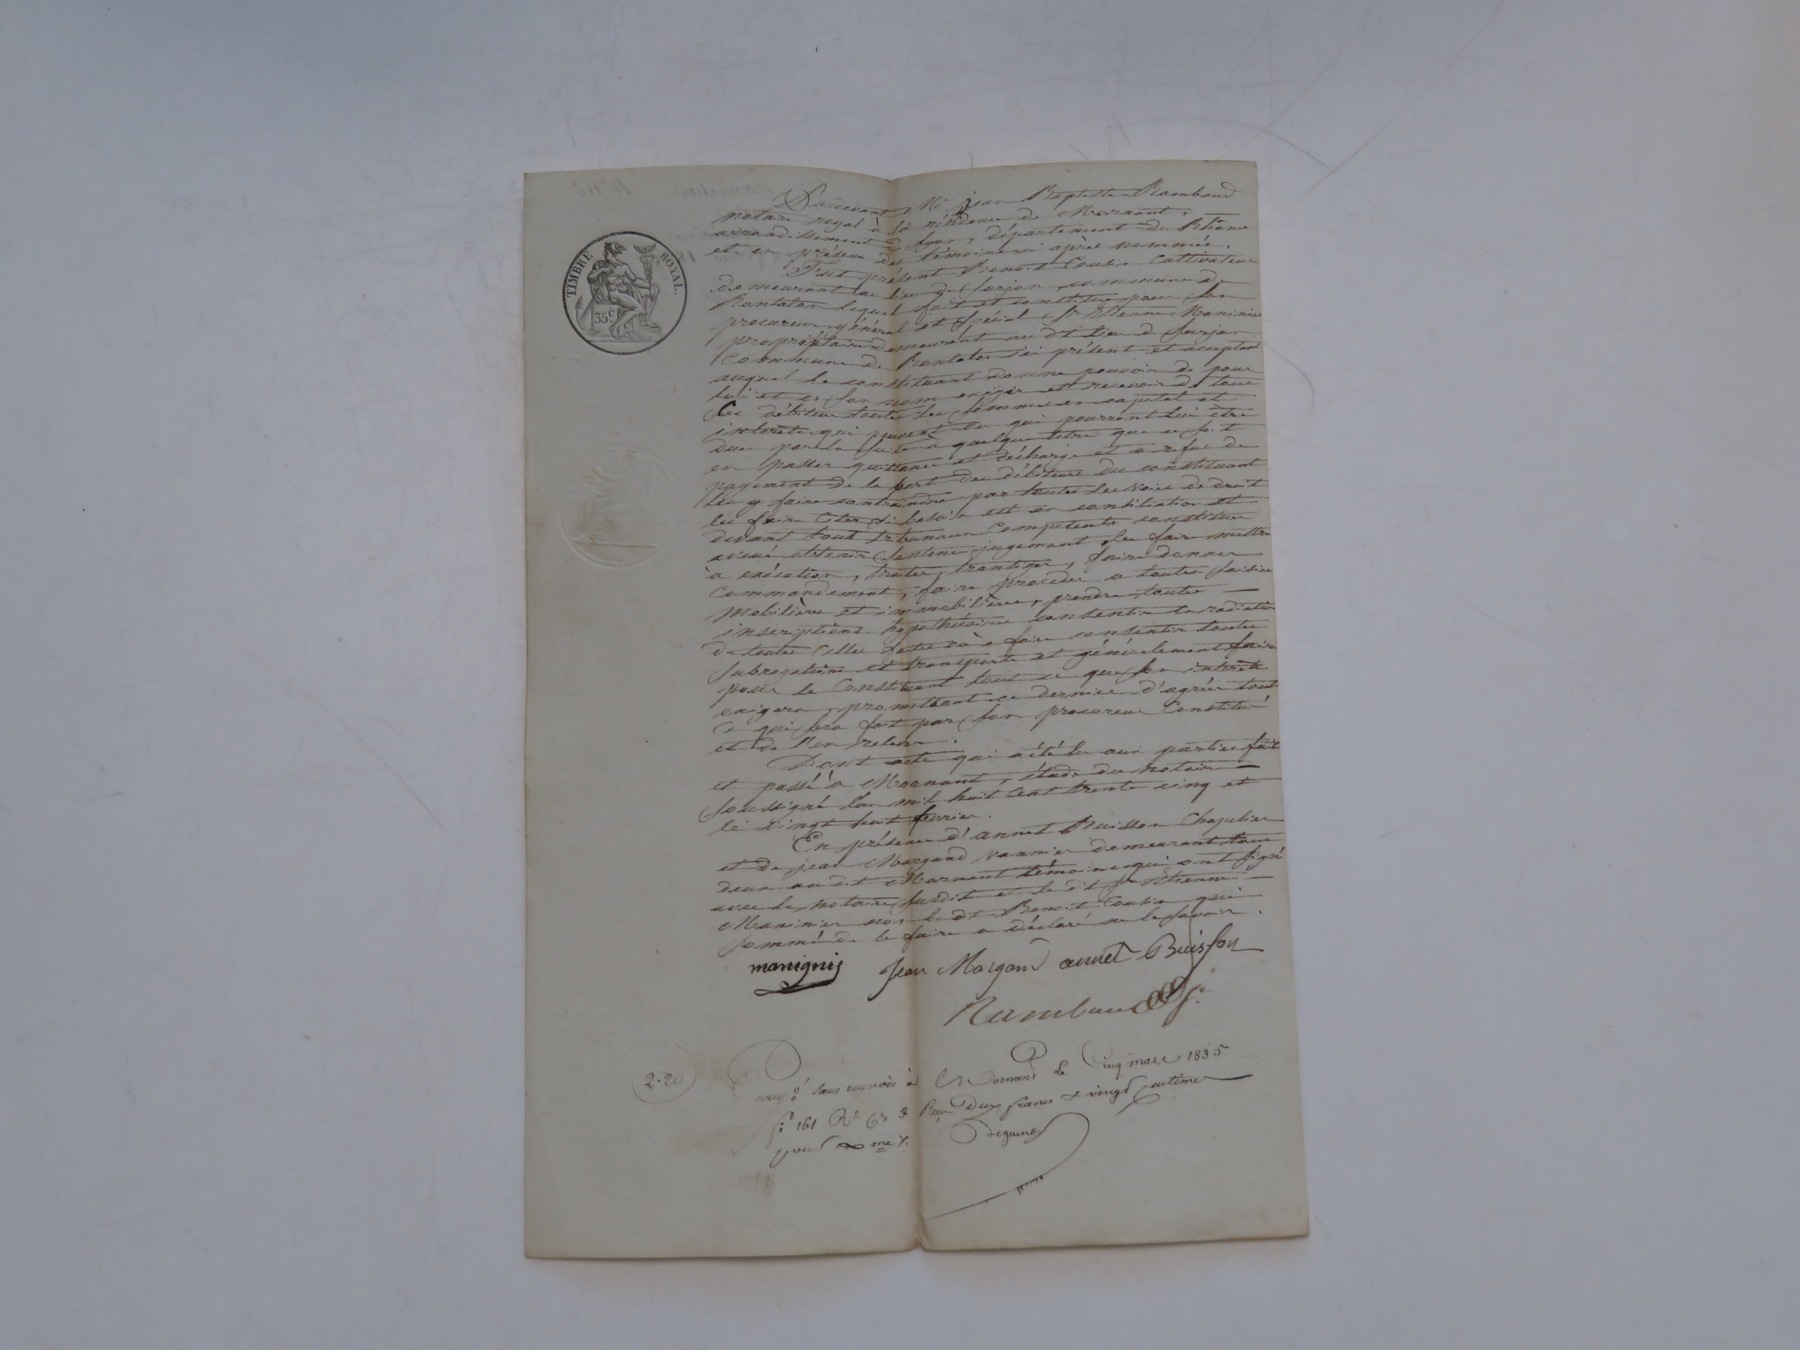 Pardevant Me jean Baptiste Rambaud
notaire royal à la résidence de Mornant,
arrondissement de Lyon, département du Rhône
et en présence des témoins ci après nommés.
Fut présent Benoit Coutin Cultivateur
demeurant au lieu de Surjon, commune de
lequel fait et constitue pour son
procureur général et spécial Sr Etienne
propriétaire demeurant au dt lieu de Surjon
Commune de ici présent et acceptant
auquel le constituant donne pouvoir de pour
lui et en son nom exiger et recevoir de tous
les débiteurs toutes les sommes en capital et
interets qui peuvent ou qui pourront lui être
dues par la suite à quelque titre que ce soit
en passer quittance et décharge et a refus de
payement de la part des débiteurs du constituant
les y faire contraindre par toutes les voies de droit
les faire citer si besoin est en conciliation et
devant tout tribunaux Compétents constituer
avoué obtenir sentence jugement les faire mettre
à exécution, traiter, transiger, faire donner
Commandement, faire procéder a toutes saisies
Mobilière et immobilière, prendre toute
inscriptions hypothécaire consentir la radiation
de toutes celles faire consentir toutes
subrogations et transports et généralement faire
pour le Constituant tout ce que son intérêt
exigera, promettant ce dernier d'agréer tout
ce qui sera fait par son procureur Constitué
et de l'en relever.
Dont acte qui a été lu aux parties fait
et passé à Mornant, étude du notaire
soussigné l'an mil huit cent trente cinq et
le vingt huit février.
En présence d'annet Buisson Chapelier
et de jean Margand vannier demeurant tous
deux au dit Mornant témoins qui ont signé
avec le notaire susdit et le dit Sr Etienne
non le dt Benoit Coutin qui
sommé de le faire a déclaré ne le savoir.
manignis Jean Margand annet Buisson
Rambaud
TIMBRE ROYAL.
35c
2.20
sans renvois à Mornant le Cinq mars 1835
fo 161 Ro Reçu Deux francs & vingt centimes
pour